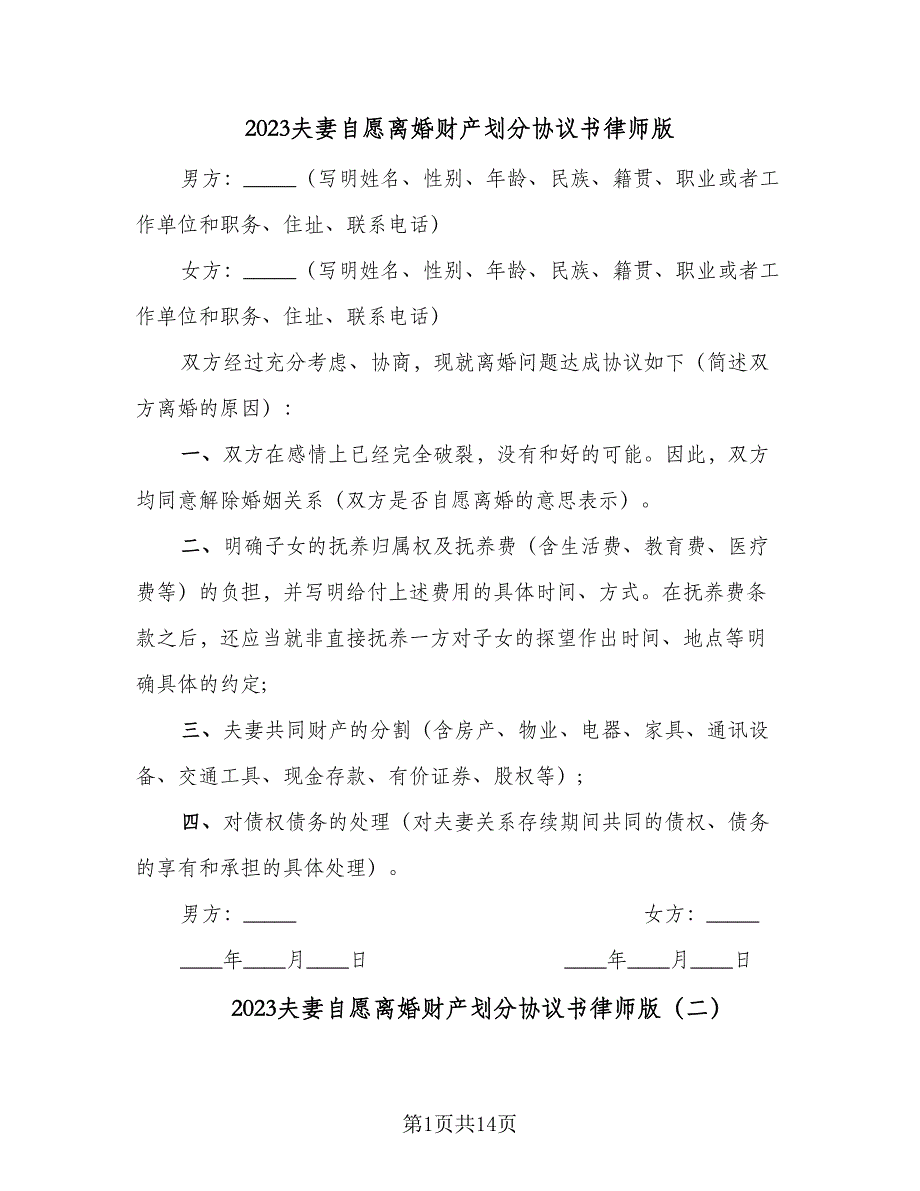 2023夫妻自愿离婚财产划分协议书律师版
男方：_____（写明姓名、性别、年龄、民族、籍贯、职业或者工
作单位和职务、住址、联系电话）
女方：_____（写明姓名、性别、年龄、民族、籍贯、职业或者工
作单位和职务、住址、联系电话）
双方经过充分考虑、协商，现就离婚问题达成协议如下（简述双
方离婚的原因）：
一、双方在感情上已经完全破裂，没有和好的可能。因此，双方
均同意解除婚姻关系（双方是否自愿离婚的意思表示）。
二、明确子女的抚养归属权及抚养费（含生活费、教育费、医疗
费等）的负担，并写明给付上述费用的具体时间、方式。在抚养费条
款之后，还应当就非直接抚养一方对子女的探望作出时间、地点等明
确具体的约定;
三、夫妻共同财产的分割（含房产、物业、电器、家具、通讯设
备、交通工具、现金存款、有价证券、股权等）;
四、对债权债务的处理（对夫妻关系存续期间共同的债权、债务
的享有和承担的具体处理）。
男方：_____ 女方：_____
____年____月____日 ____年____月____日
2023夫妻自愿离婚财产划分协议书律师版（二）
第1页共14页